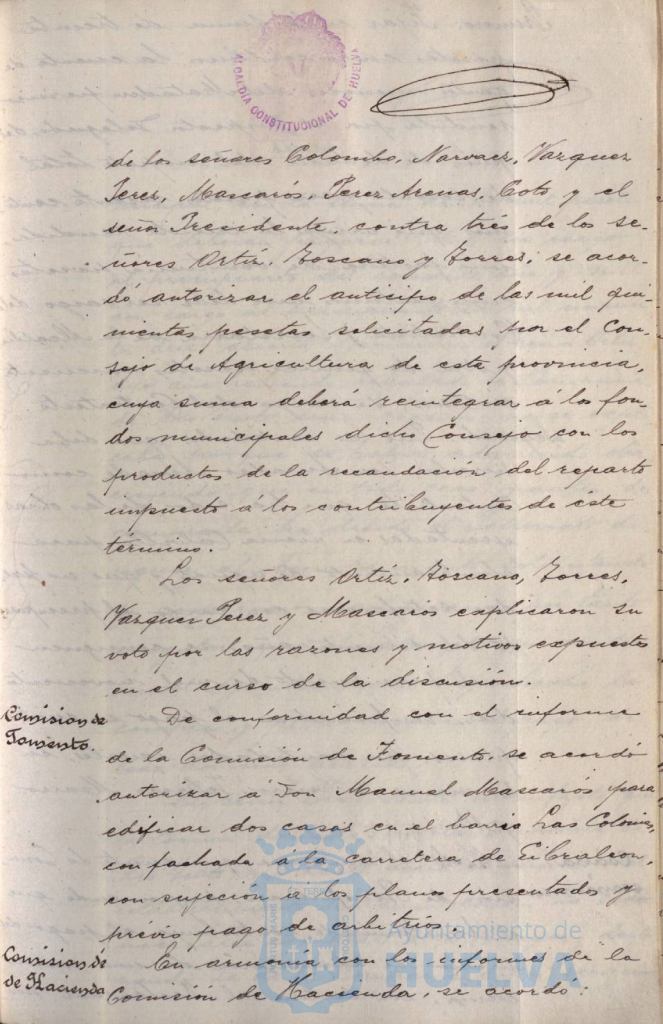 ALCALDÍA CONSTITUCIONAL DE HUELVA
de los señores Colombo, Narvaez, Vazquez
Perez, Mascarós, Perez Arenas, Coto y el
señor Presidente, contra trés de los se-
ñores Ortíz, Toscano y Torres, se acor-
dó autorizar el anticipo de las mil qui-
nientas pesetas solicitadas por el Con-
sejo de Agricultura de esta provincia,
cuya suma deberá reintegrar á los fon-
dos municipales dicho Consejo con los
productos de la recaudación del reparto
impuesto á los contribuyentes de éste
término.
Los señores Ortíz, Toscano, Torres,
Vazquez Perez y Mascarós explicaron su
voto por las razones y motivos expuestos
en el curso de la discusión.
Comision de
Fomento.
De conformidad con el informe
de la Comisión de Fomento, se acordó
autorizar á Don Manuel Mascarós para
edificar dos casas en el barrio Las Colonias,
con fachada á la carretera de Gibraleon,
con sujeción á los planos presentados y
prévio pago de arbitrios.
Comisión de
de Hacienda
En armonía con los informes de la
Comisión de Hacienda, se acordó:
Ayuntamiento de
HUELVA